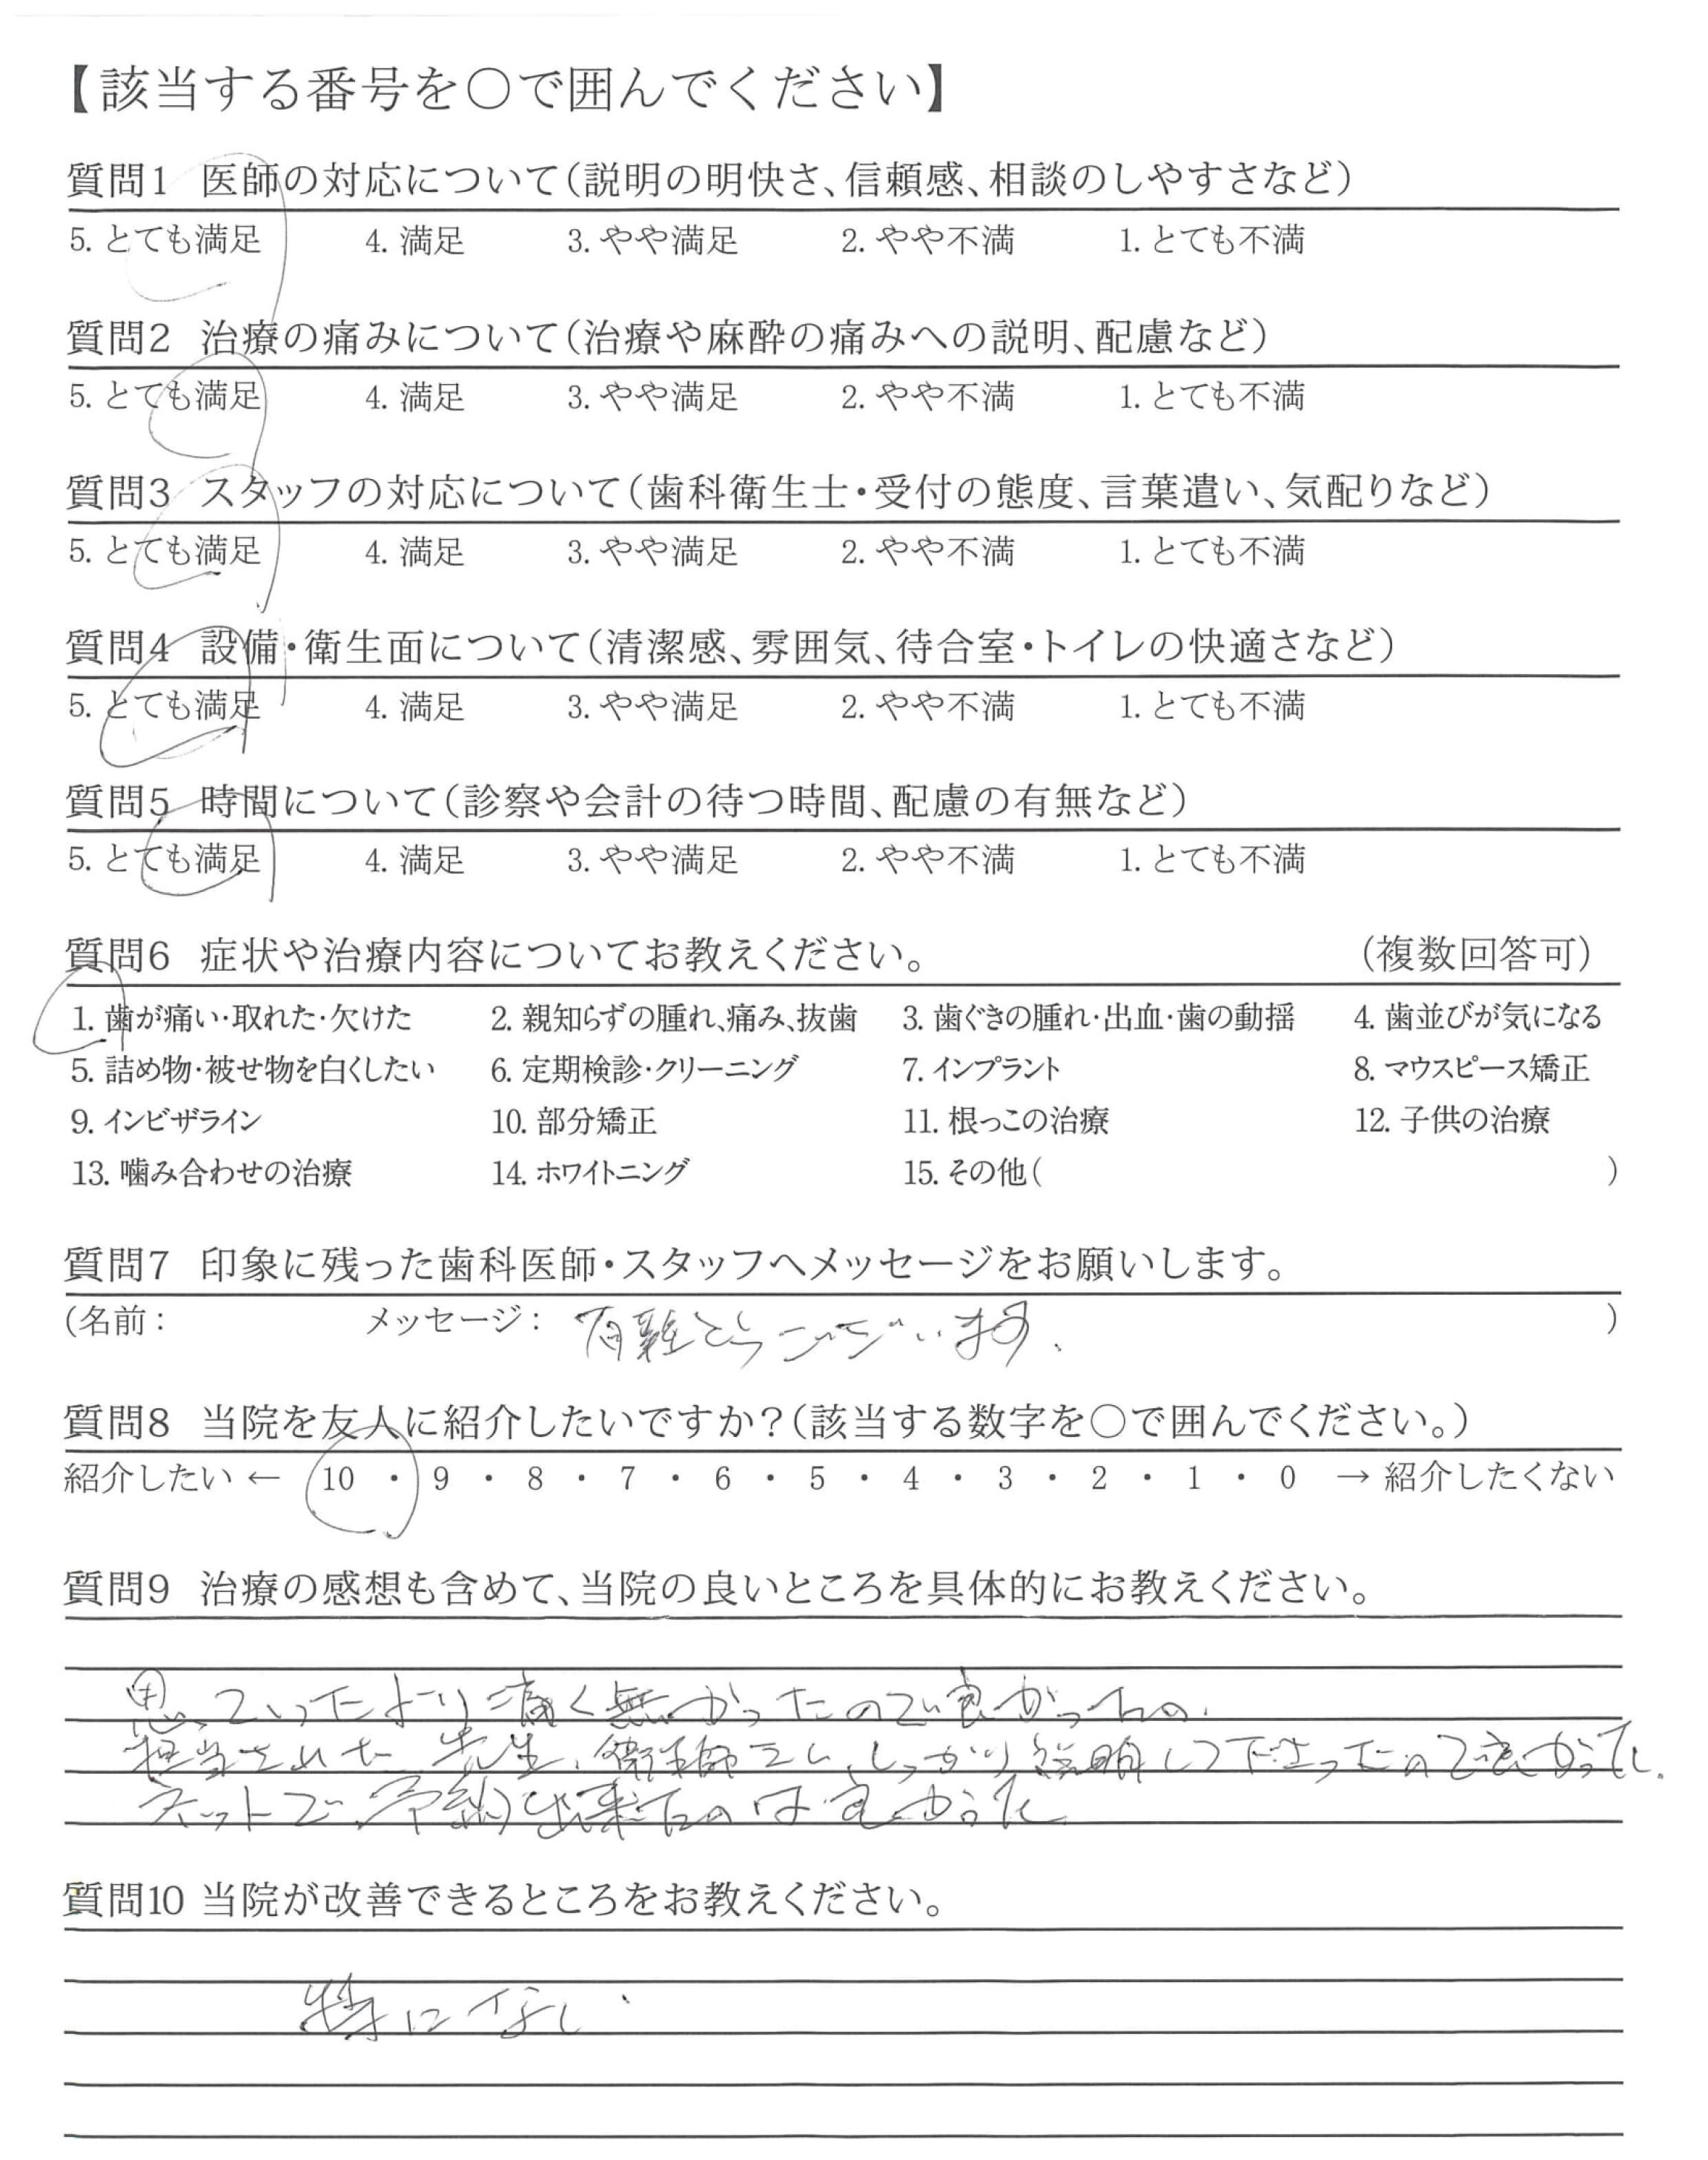 【該当する番号を〇で囲んでください】
質問1 医師の対応について(説明の明快さ、信頼感、相談のしやすさなど)
5. とても満足 4. 満足 3. やや満足 2. やや不満 1. とても不満
質問2 治療の痛みについて(治療や麻酔の痛みへの説明、配慮など)
5. とても満足 4. 満足 3. やや満足 2. やや不満 1. とても不満
質問3 スタッフの対応について(歯科衛生士・受付の態度、言葉遣い、気配りなど)
5. とても満足 4. 満足 3. やや満足 2. やや不満 1. とても不満
質問4 設備・衛生面について(清潔感、雰囲気、待合室・トイレの快適さなど)
5. とても満足 4. 満足 3. やや満足 2. やや不満 1. とても不満
質問5 時間について(診察や会計の待つ時間、配慮の有無など)
5. とても満足 4. 満足 3. やや満足 2. やや不満 1. とても不満
質問6 症状や治療内容についてお教えください。 (複数回答可)
1. 歯が痛い・取れた・欠けた 2. 親知らずの腫れ、痛み、抜歯 3. 歯ぐきの腫れ・出血・歯の動揺 4. 歯並びが気になる
5. 詰め物・被せ物を白くしたい 6. 定期検診・クリーニング 7. インプラント 8. マウスピース矯正
9. インビザライン 10. 部分矯正 11. 根っこの治療 12. 子供の治療
13. 噛み合わせの治療 14. ホワイトニング 15. その他( )
質問7 印象に残った歯科医師・スタッフへメッセージをお願いします。
(名前: メッセージ: 有難とうございます. )
質問8 当院を友人に紹介したいですか?(該当する数字を〇で囲んでください。)
紹介したい ← 10 ・ 9 ・ 8 ・ 7 ・ 6 ・ 5 ・ 4 ・ 3 ・ 2 ・ 1 ・ 0 → 紹介したくない
質問9 治療の感想も含めて、当院の良いところを具体的にお教えください。
思っていたより痛く無かったので良かった
担当された先生、衛生師さん、しっかり説明して下さったので良かった.
ネットで、予約出来たのは良かった
質問10 当院が改善できるところをお教えください。
特になし